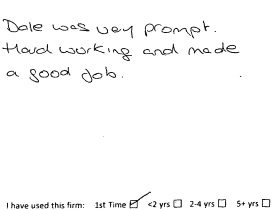 Dale was very prompt.
Hard working and made
a good job.
I have used this firm: 1st Time ☑ <2 yrs ☐ 2-4 yrs ☐ 5+ yrs ☐